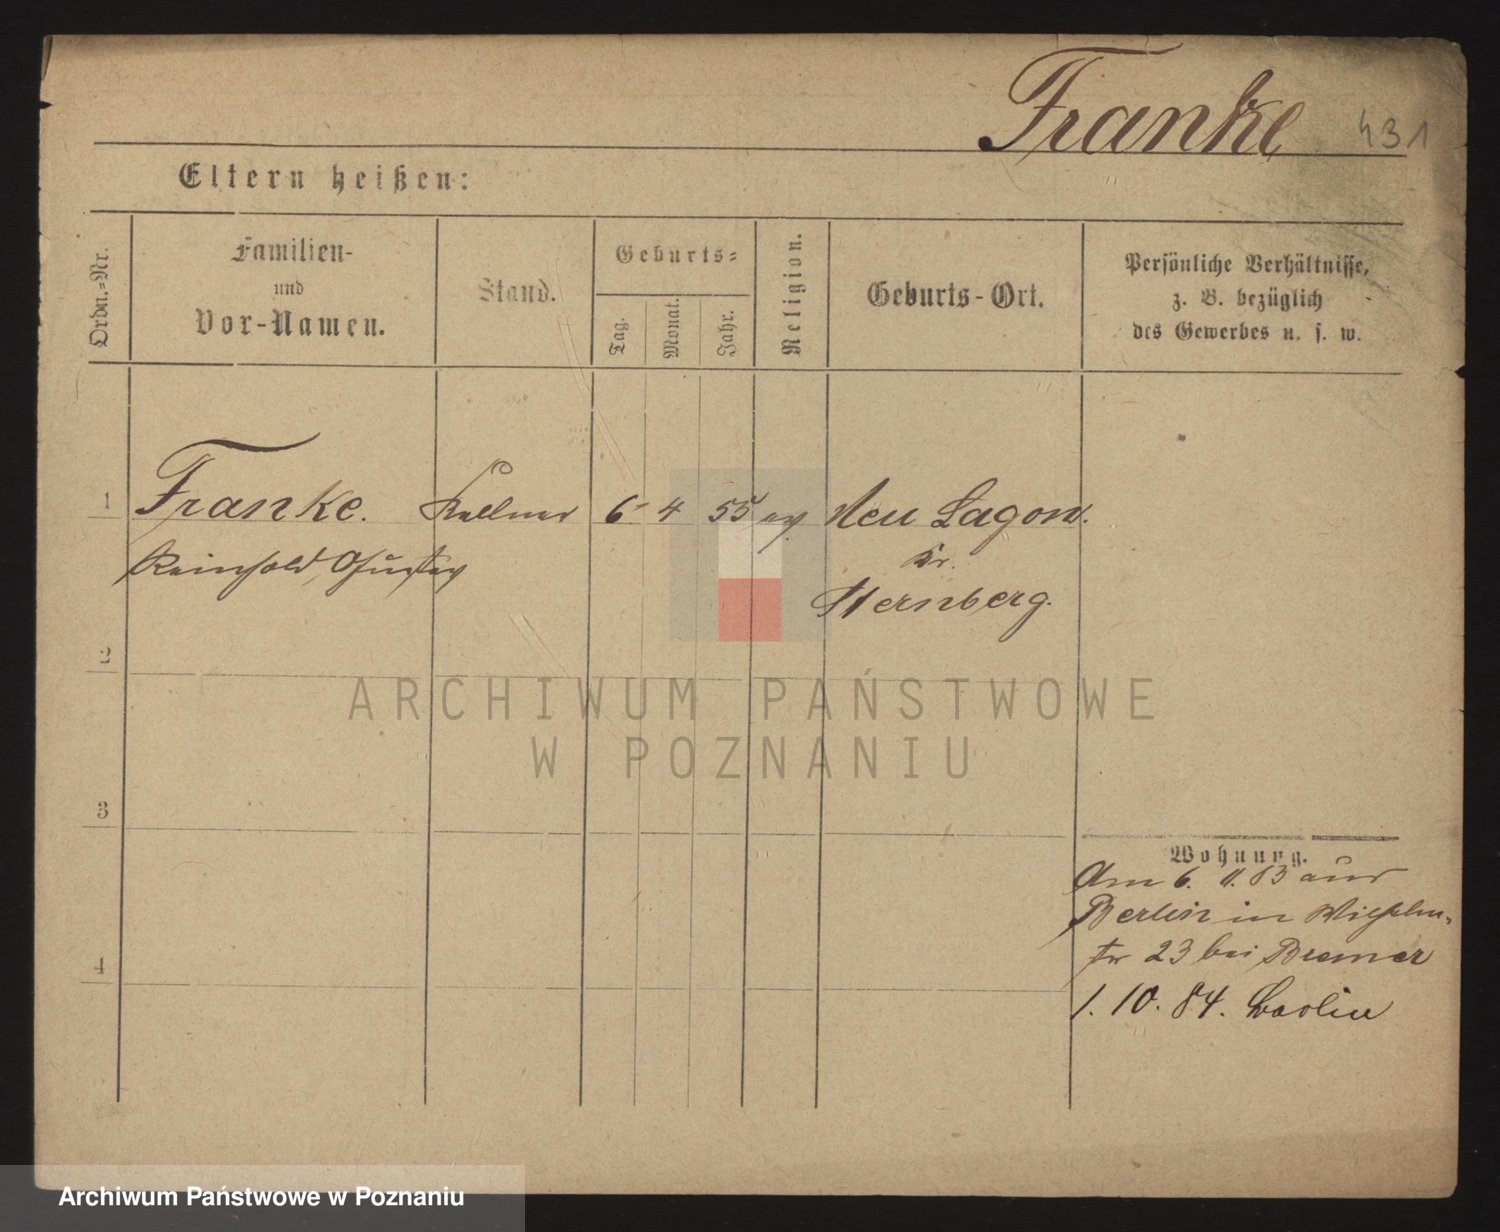 Franke 431
Eltern heißen:
Ordn.-Nr.
Familien-
und
Vor-Namen.
Stand.
Geburts-
Tag.
Monat.
Jahr.
Religion.
Geburts-Ort.
Persönliche Verhältnisse,
z. B. bezüglich
des Gewerbes u. s. w.
1 Franke. Kellner 6 4 55 ev. Neu Lagow.
Reinhold Gustav
Kr.
Sternberg.
2
3
4
Wohnung.
Am 6. 11. 83 aus
Berlin in Wilhelm-
str 23 bei Bremer
1. 10. 84. Berlin
ARCHIWUM PAŃSTWOWE
W POZNANIU
Archiwum Państwowe w Poznaniu